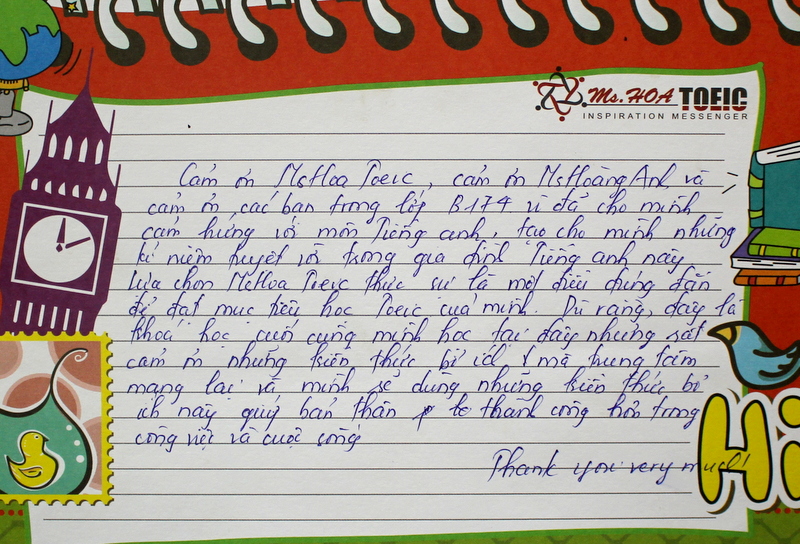 Ms.HOA TOEIC
INSPIRATION MESSENGER
Cảm ơn MsHoa Toeic, cảm ơn MsHoàng Anh, và
cảm ơn các bạn trong lớp B174 vì đã cho mình
cảm hứng với môn Tiếng anh, tạo cho mình những
kỉ niệm tuyệt vời trong gia đình Tiếng anh này
Lựa chọn MsHoa Toeic thực sự là một điều đúng đắn
để đạt mục tiêu học Toeic của mình. Dù rằng, đây là
khoá học cuối cùng mình học tại đây nhưng rất
cảm ơn những kiến thức bổ ích mà trung tâm
mang lại và mình sẽ dùng những kiến thức bổ
ích này giúp bản thân thành công hơn trong
công việc và cuộc sống
Thank you very much!
Hi